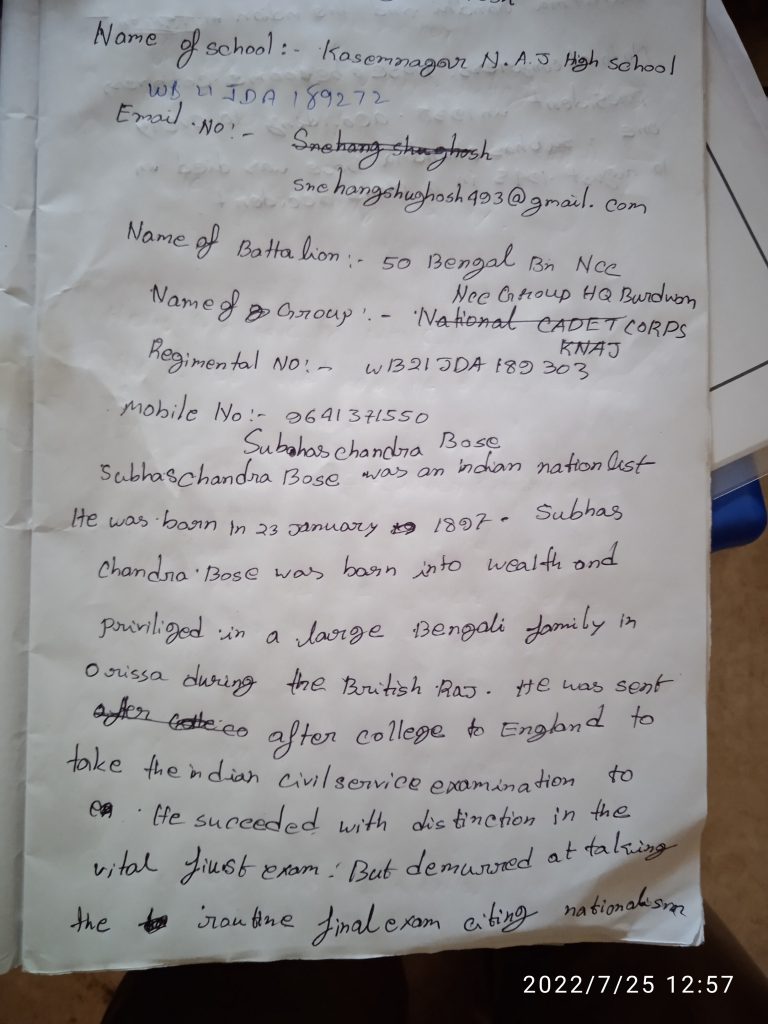 Name of school :- Kasemnagar N.A.J High school
WB 21 JDA 189272
Email NO :- Snehang shu ghosh
snehangshughosh493@gmail.com
Name of Battalion :- 50 Bengal Bn Ncc
Ncc Group HQ Burdwan
Name of Group :- National CADET CORPS
KNAJ
Regimental NO :- WB21JDA 189 303
Mobile No :- 9641371550
Subhas chandra Bose
Subhas Chandra Bose was an indian nationlist
He was barn in 23 January 1897. Subhas
Chandra Bose was barn into wealth and
priviliged in a large Bengali family in
Orissa during the British Raj. He was sent
after after college to England to
take the indian civil service examination to
He succeeded with distinction in the
vital first exam. But demurred at taking
the routine final exam citing nationalism
2022/7/25 12:57